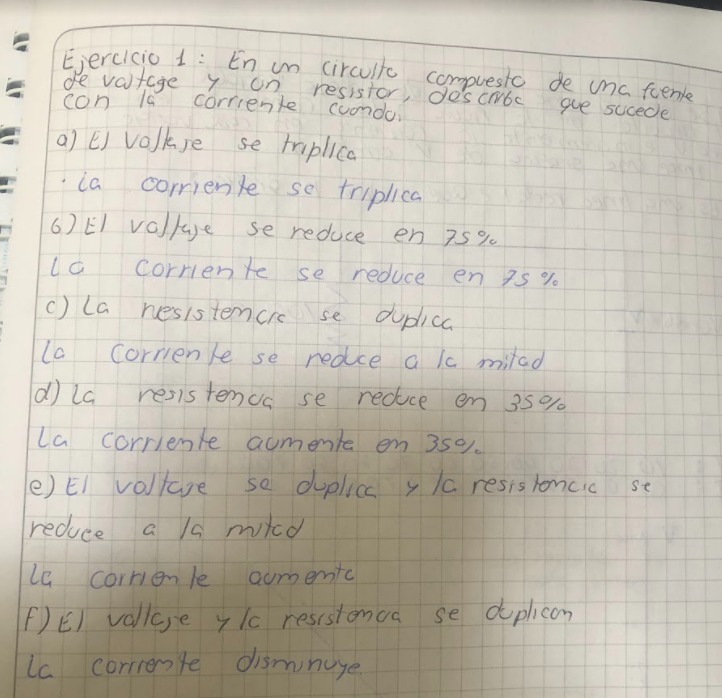 Ejercicio 1: En un circuito compuesto de una fuente
de voltage y un resistor, describe que sucede
con la corriente cuando:
a) El voltaje se triplica
· la corriente se triplica
b) El voltaje se reduce en 75%
La corriente se reduce en 75%
c) La resistencia se duplica
la corriente se reduce a la mitad
d) la resistencia se reduce en 35%
La corriente aumente en 35%.
e) El voltaje se duplica y la resistencia se
reduce a la mitad
la corriente aumenta
f) El voltaje y la resistencia se duplican
la corriente disminuye